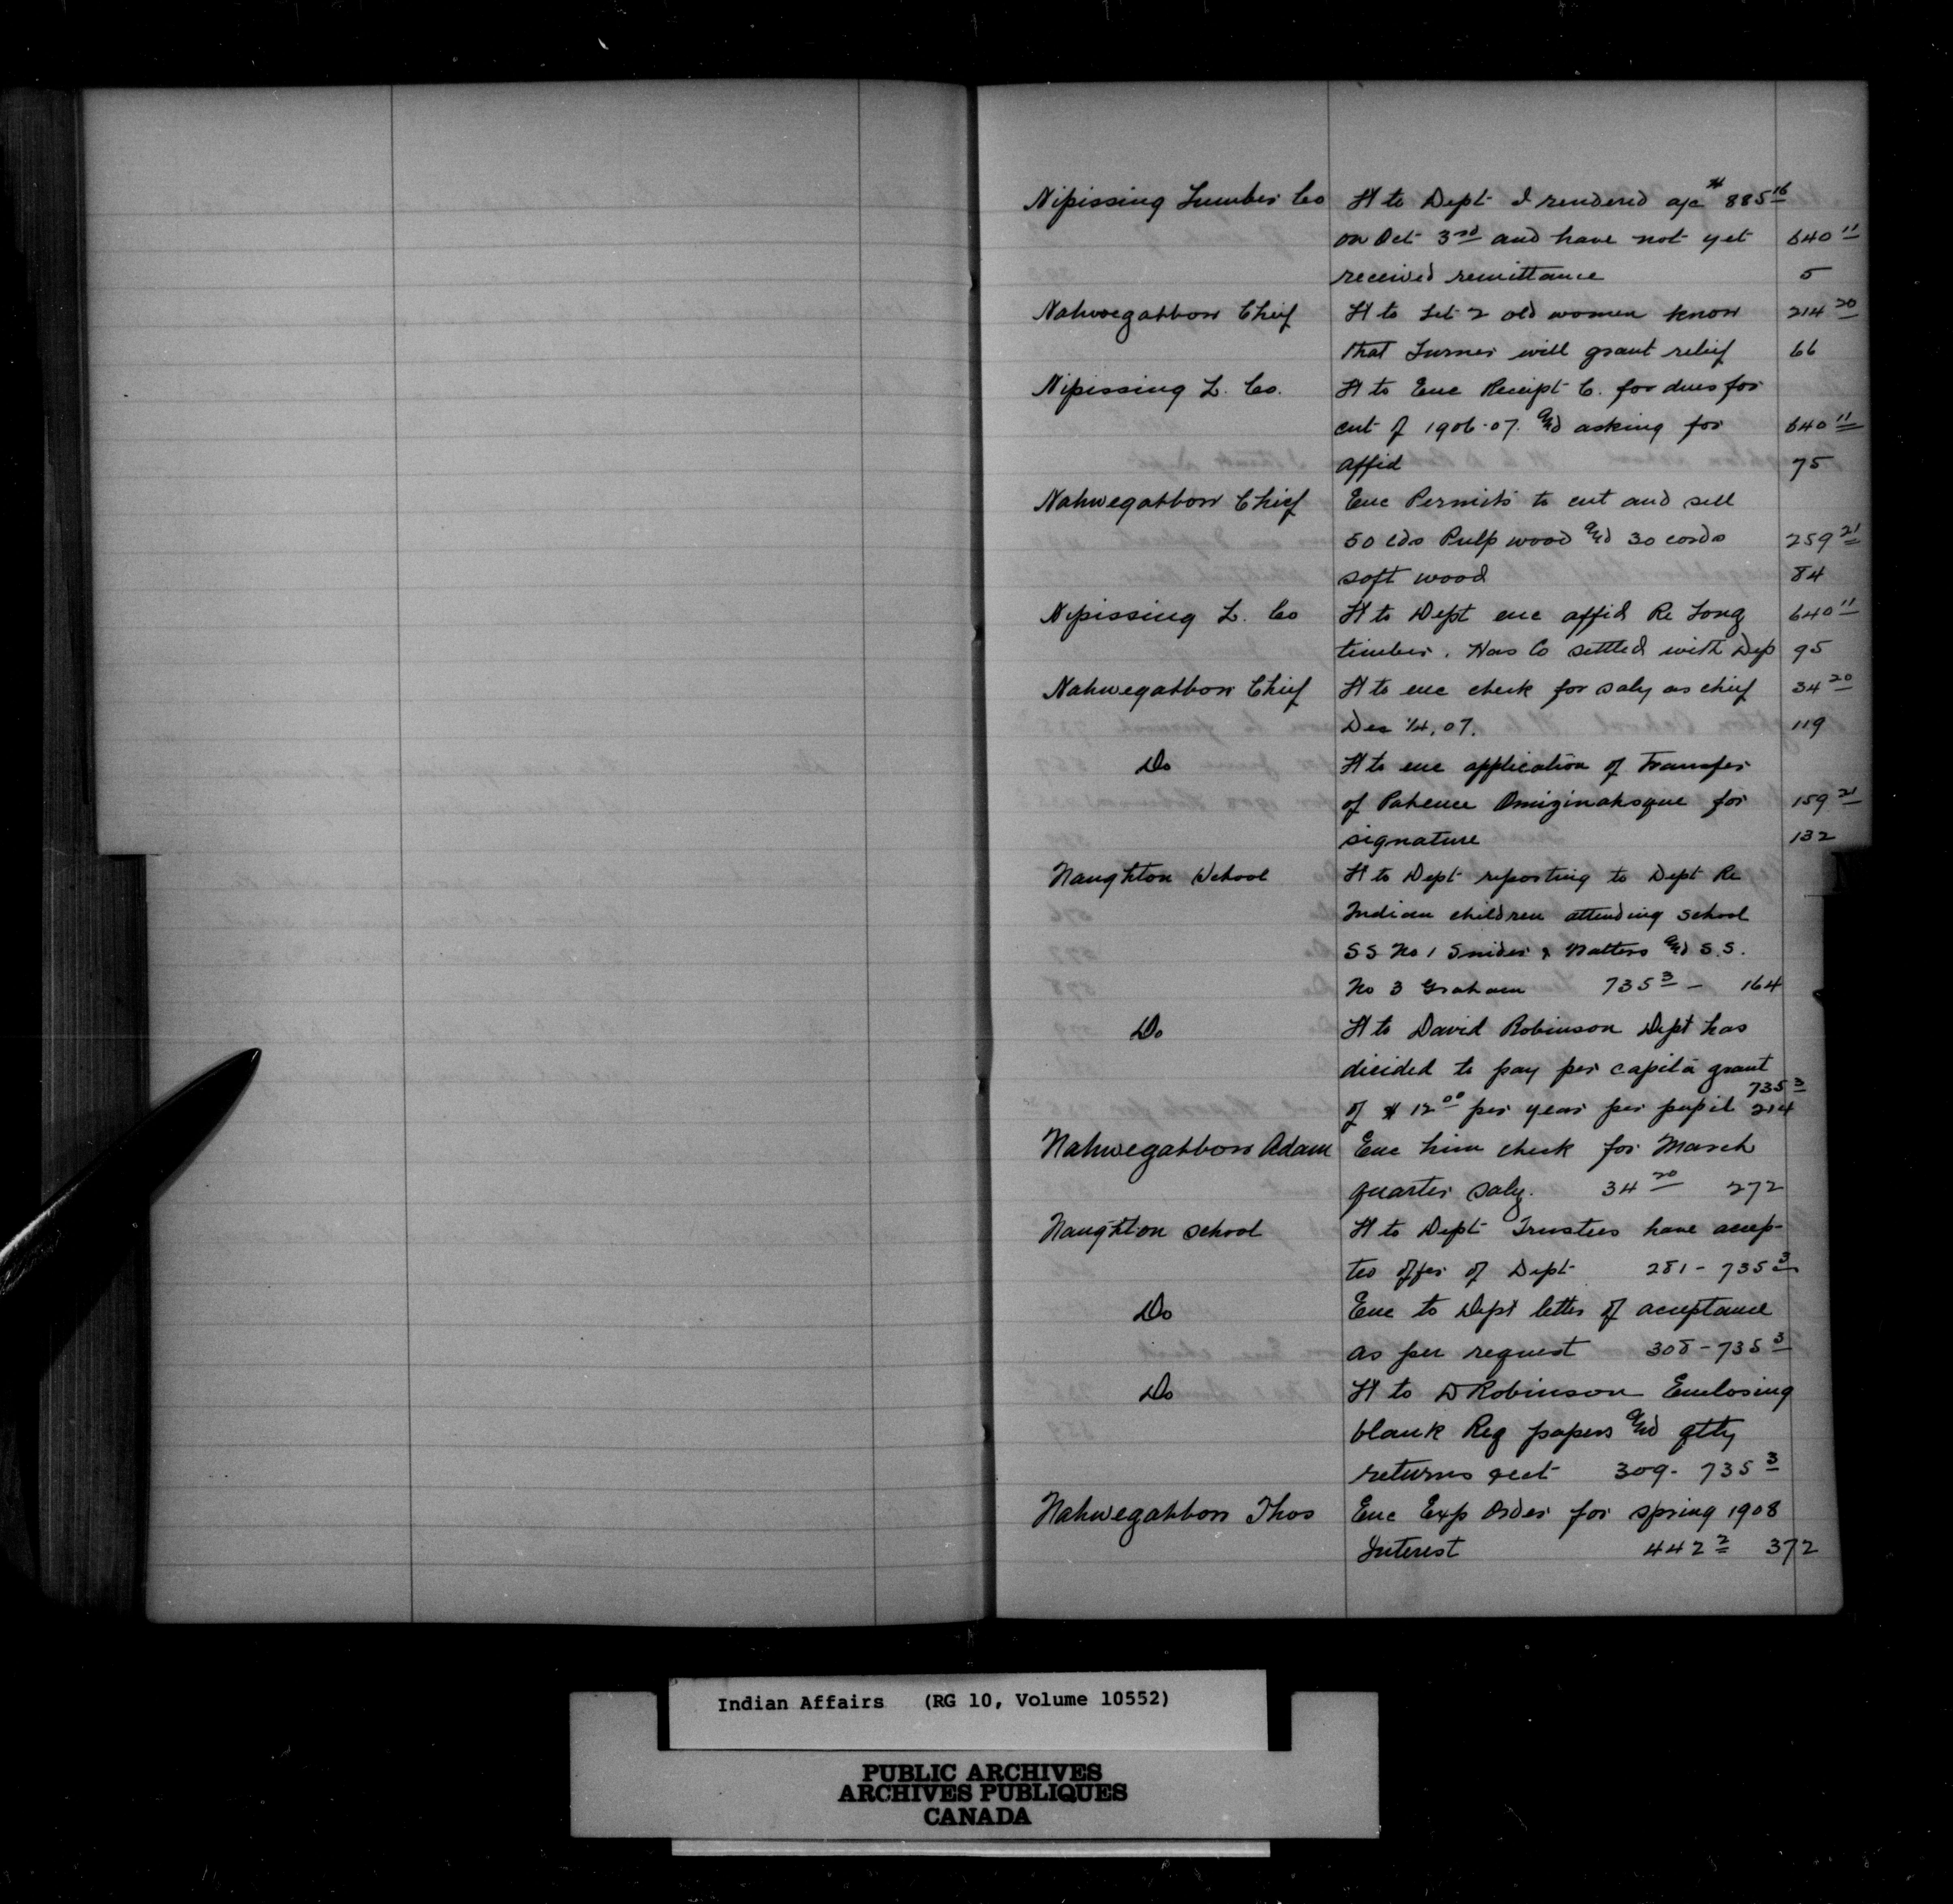 Nipissing Lumber Co H to Dept I rendered a/c # 885 16
on Oct 3rd and have not yet 640 11
received remittance 5
Nahwegahbow Chief H to let 2 old women know 214 20
that Turner will grant relief 66
Nipissing L. Co. H to Enc Receipt C. for dues for
cut of 1906-07. and asking for 640 11
affid 75
Nahwegahbow Chief Enc Permits to cut and sell
50 cds Pulp wood and 30 cords 259 21
soft wood 84
Nipissing L. Co H to Dept enc affid Re Long 640 11
timber. Has Co settled with Dep 95
Nahwegahbow Chief H to enc check for saly as chief 34 20
Dec 1/4, 07. 119
Do H to enc application of Transfer
of Patience Omiginahsque for 159 21
signature 132
Naughton School H to Dept reporting to Dept Re
Indian children attending school
SS No 1 Snider & Watters and S.S.
No 3 Graham 735 3 - 164
Do H to David Robinson Dept has
decided to pay per capita grant
of $ 12 00 per year per pupil 735 3 214
Nahwegahbow Adam Enc him check for March
quarter saly. 34 20 272
Naughton school H to Dept Trustees have accep-
ted offer of Dept 281 - 735 3
Do Enc to Dept letter of acceptance
as per request 308 - 735 3
Do H to D Robinson Enclosing
blank Reg papers and qtly
returns rect 309 - 735 3
Nahwegahbow Thos Enc Exp Order for spring 1908
Interest 442 2 372
Indian Affairs (RG 10, Volume 10552)
PUBLIC ARCHIVES
ARCHIVES PUBLIQUES
CANADA